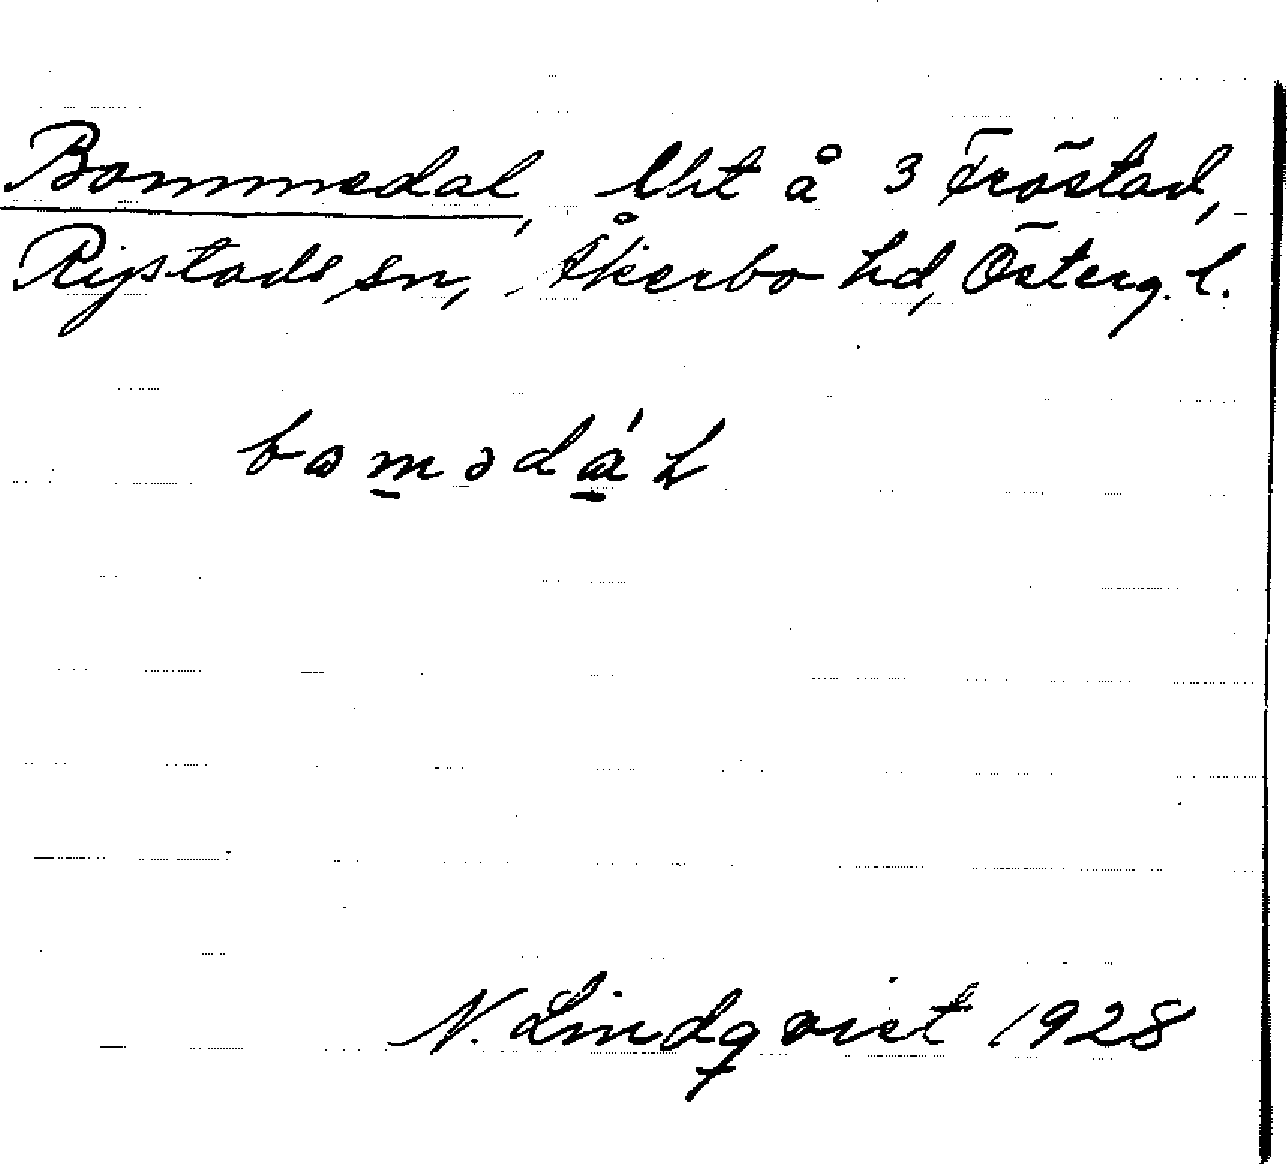 Bommedal, lht å 3 Fröstad,
Rystads sn, Åkerbo hd, Österg. l.
bomədál
N. Lindqvist 1928